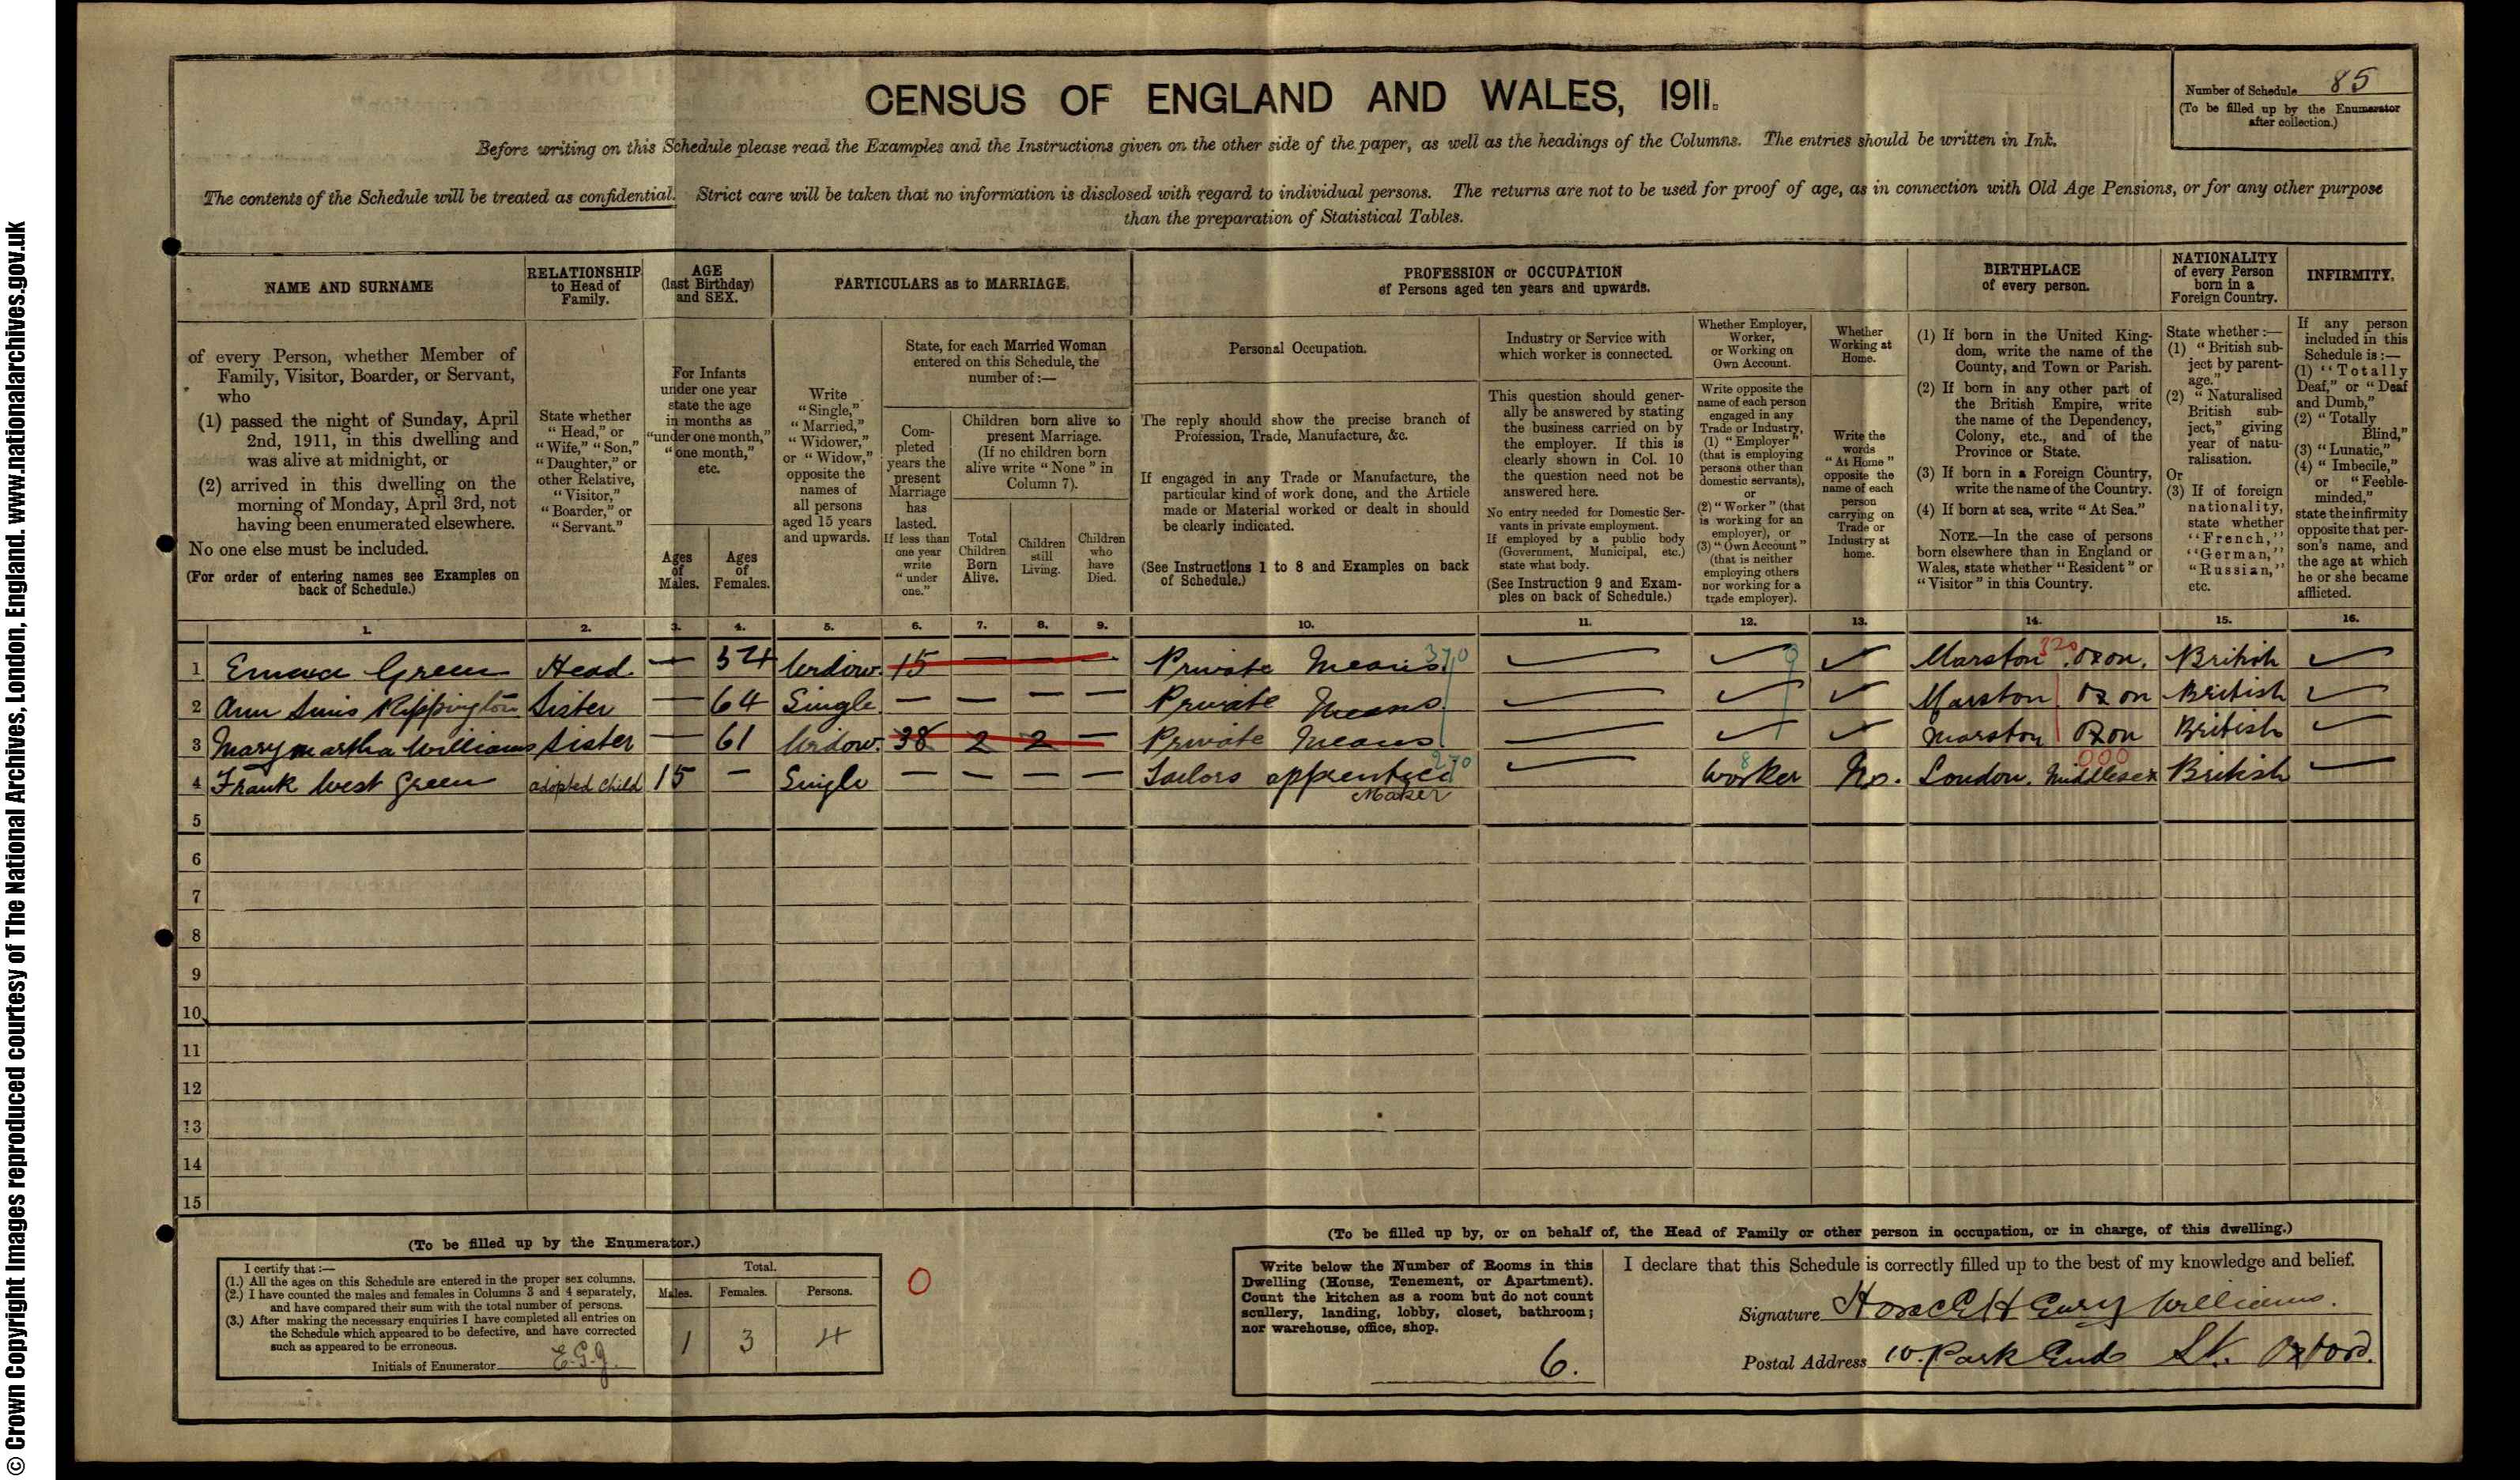 © Crown Copyright Images reproduced courtesy of The National Archives, London, England. www.nationalarchives.gov.uk
CENSUS OF ENGLAND AND WALES, 1911.
Number of Schedule 85
(To be filled up by the Enumerator
after collection.)
Before writing on this Schedule please read the Examples and the Instructions given on the other side of the paper, as well as the headings of the Columns. The entries should be written in Ink.
The contents of the Schedule will be treated as confidential. Strict care will be taken that no information is disclosed with regard to individual persons. The returns are not to be used for proof of age, as in connection with Old Age Pensions, or for any other purpose
than the preparation of Statistical Tables.
NAME AND SURNAME
of every Person, whether Member of
Family, Visitor, Boarder, or Servant,
who
(1) passed the night of Sunday, April
2nd, 1911, in this dwelling and
was alive at midnight, or
(2) arrived in this dwelling on the
morning of Monday, April 3rd, not
having been enumerated elsewhere.
No one else must be included.
(For order of entering names see Examples on
back of Schedule.)
RELATIONSHIP
to Head of
Family.
State whether
"Head," or
"Wife," "Son,"
"Daughter," or
other Relative,
"Visitor,"
"Boarder," or
"Servant."
AGE
(last Birthday)
and SEX.
For Infants
under one year
state the age
in months as
"under one month,"
"one month,"
etc.
Ages
of
Males.
Ages
of
Females.
PARTICULARS as to MARRIAGE.
Write
"Single,"
"Married,"
"Widower,"
or "Widow,"
opposite the
names of
all persons
aged 15 years
and upwards.
State, for each Married Woman
entered on this Schedule, the
number of:—
Com-
pleted
years the
present
Marriage
has
lasted.
If less than
one year
write
"under
one."
Children born alive to
present Marriage.
(If no children born
alive write "None" in
Column 7).
Total
Children
Born
Alive.
Children
still
Living.
Children
who
have
Died.
PROFESSION or OCCUPATION
of Persons aged ten years and upwards.
Personal Occupation.
The reply should show the precise branch of
Profession, Trade, Manufacture, &c.
If engaged in any Trade or Manufacture, the
particular kind of work done, and the Article
made or Material worked or dealt in should
be clearly indicated.
(See Instructions 1 to 8 and Examples on back
of Schedule.)
Industry or Service with
which worker is connected.
This question should gener-
ally be answered by stating
the business carried on by
the employer. If this is
clearly shown in Col. 10
the question need not be
answered here.
No entry needed for Domestic Ser-
vants in private employment.
If employed by a public body
(Government, Municipal, etc.)
state what body.
(See Instruction 9 and Exam-
ples on back of Schedule.)
Whether Employer,
Worker,
or Working on
Own Account.
Write opposite the
name of each person
engaged in any
Trade or Industry,
(1) "Employer"
(that is employing
persons other than
domestic servants),
or
(2) "Worker" (that
is working for an
employer), or
(3) "Own Account"
(that is neither
employing others
nor working for a
trade employer).
Whether
Working at
Home.
Write the
words
"At Home"
opposite the
name of each
person
carrying on
Trade or
Industry at
home.
BIRTHPLACE
of every person.
(1) If born in the United King-
dom, write the name of the
County, and Town or Parish.
(2) If born in any other part of
the British Empire, write
the name of the Dependency,
Colony, etc., and of the
Province or State.
(3) If born in a Foreign Country,
write the name of the Country.
(4) If born at sea, write "At Sea."
NOTE.—In the case of persons
born elsewhere than in England or
Wales, state whether "Resident" or
"Visitor" in this Country.
NATIONALITY
of every Person
born in a
Foreign Country.
State whether:—
(1) "British sub-
ject by parent-
age."
(2) "Naturalised
British sub-
ject," giving
year of natu-
ralisation.
Or
(3) If of foreign
nationality,
state whether
"French,"
"German,"
"Russian,"
etc.
INFIRMITY.
If any person
included in this
Schedule is:—
(1) "Totally
Deaf," or "Deaf
and Dumb,"
(2) "Totally
Blind,"
(3) "Lunatic,"
(4) "Imbecile,"
or "Feeble-
minded,"
state the infirmity
opposite that per-
son's name, and
the age at which
he or she became
afflicted.
1. 2. 3. 4. 5. 6. 7. 8. 9. 10. 11. 12. 13. 14. 15. 16.
1 Emma Green Head — 54 Widow. 15 — — — Private Means. 370 9 Marston 320 Oxon. British
2 Ann Rippington Sister — 64 Single — — — — Private Means. Marston Oxon British
3 Mary Martha Williams Sister — 61 Widow. 38 2 2 — Private Means Marston Oxon British
4 Frank West Green adopted child 15 — Single — — — — Tailors apprentice 270 Worker 8 No. London. Middlesex 000 British —
Maker
5
6
7
8
9
10
11
12
13
14
15
(To be filled up by the Enumerator.)
I certify that:—
(1.) All the ages on this Schedule are entered in the proper sex columns.
(2.) I have counted the males and females in Columns 3 and 4 separately,
and have compared their sum with the total number of persons.
(3.) After making the necessary enquiries I have completed all entries on
the Schedule which appeared to be defective, and have corrected
such as appeared to be erroneous.
Initials of Enumerator E.G.J.
Total.
Males. Females. Persons.
1 3 4
0
(To be filled up by, or on behalf of, the Head of Family or other person in occupation, or in charge, of this dwelling.)
Write below the Number of Rooms in this
Dwelling (House, Tenement, or Apartment).
Count the kitchen as a room but do not count
scullery, landing, lobby, closet, bathroom;
nor warehouse, office, shop.
6.
I declare that this Schedule is correctly filled up to the best of my knowledge and belief.
Signature Horace Henry Williams.
Postal Address 10. Park End St. Oxford.